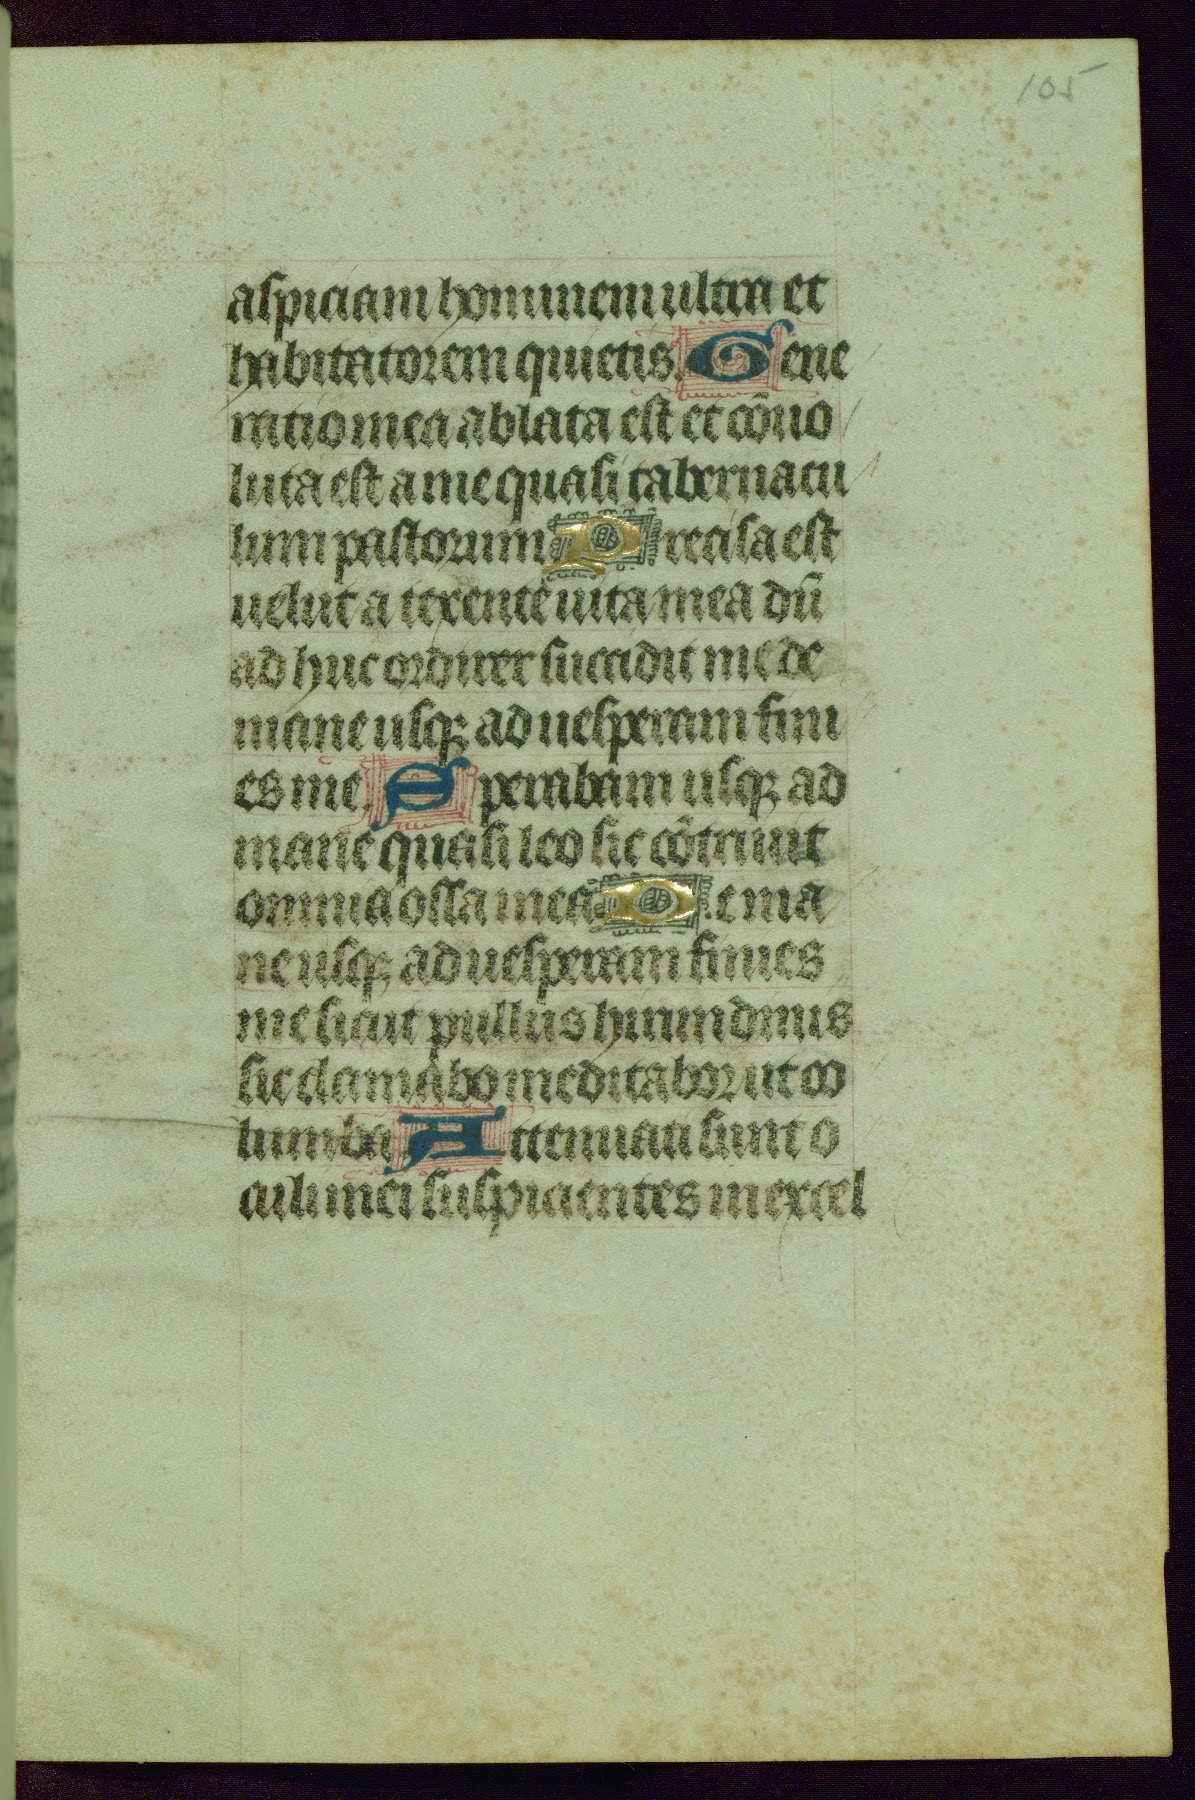 105
aspiciam hominem ultra et
habitatorem quietis. Gene
ratio mea ablata est et cōuo
luta est a me quasi tabernacu
lum pastorum Precisa est
uelut a texente uita mea dū
ad huc ordirer succidit me de
mane usq; ad uesperam fini
es me. Sperabam usq; ad
mane quasi leo sic cōtriuit
omnia ossa mea. De ma
ne usq; ad uesperam finies
me sicut pullus hirundinis
sic clamabo meditabor ut co
lumba. Attenuati sunt o
culi mei suspicientes in excel